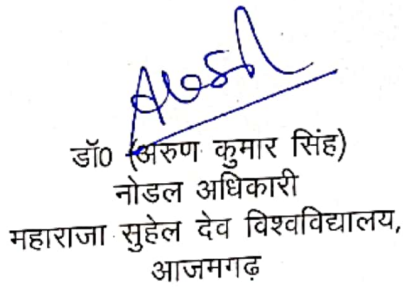 डॉ0 (अरुण कुमार सिंह)
नोडल अधिकारी
महाराजा सुहेल देव विश्वविद्यालय,
आजमगढ़